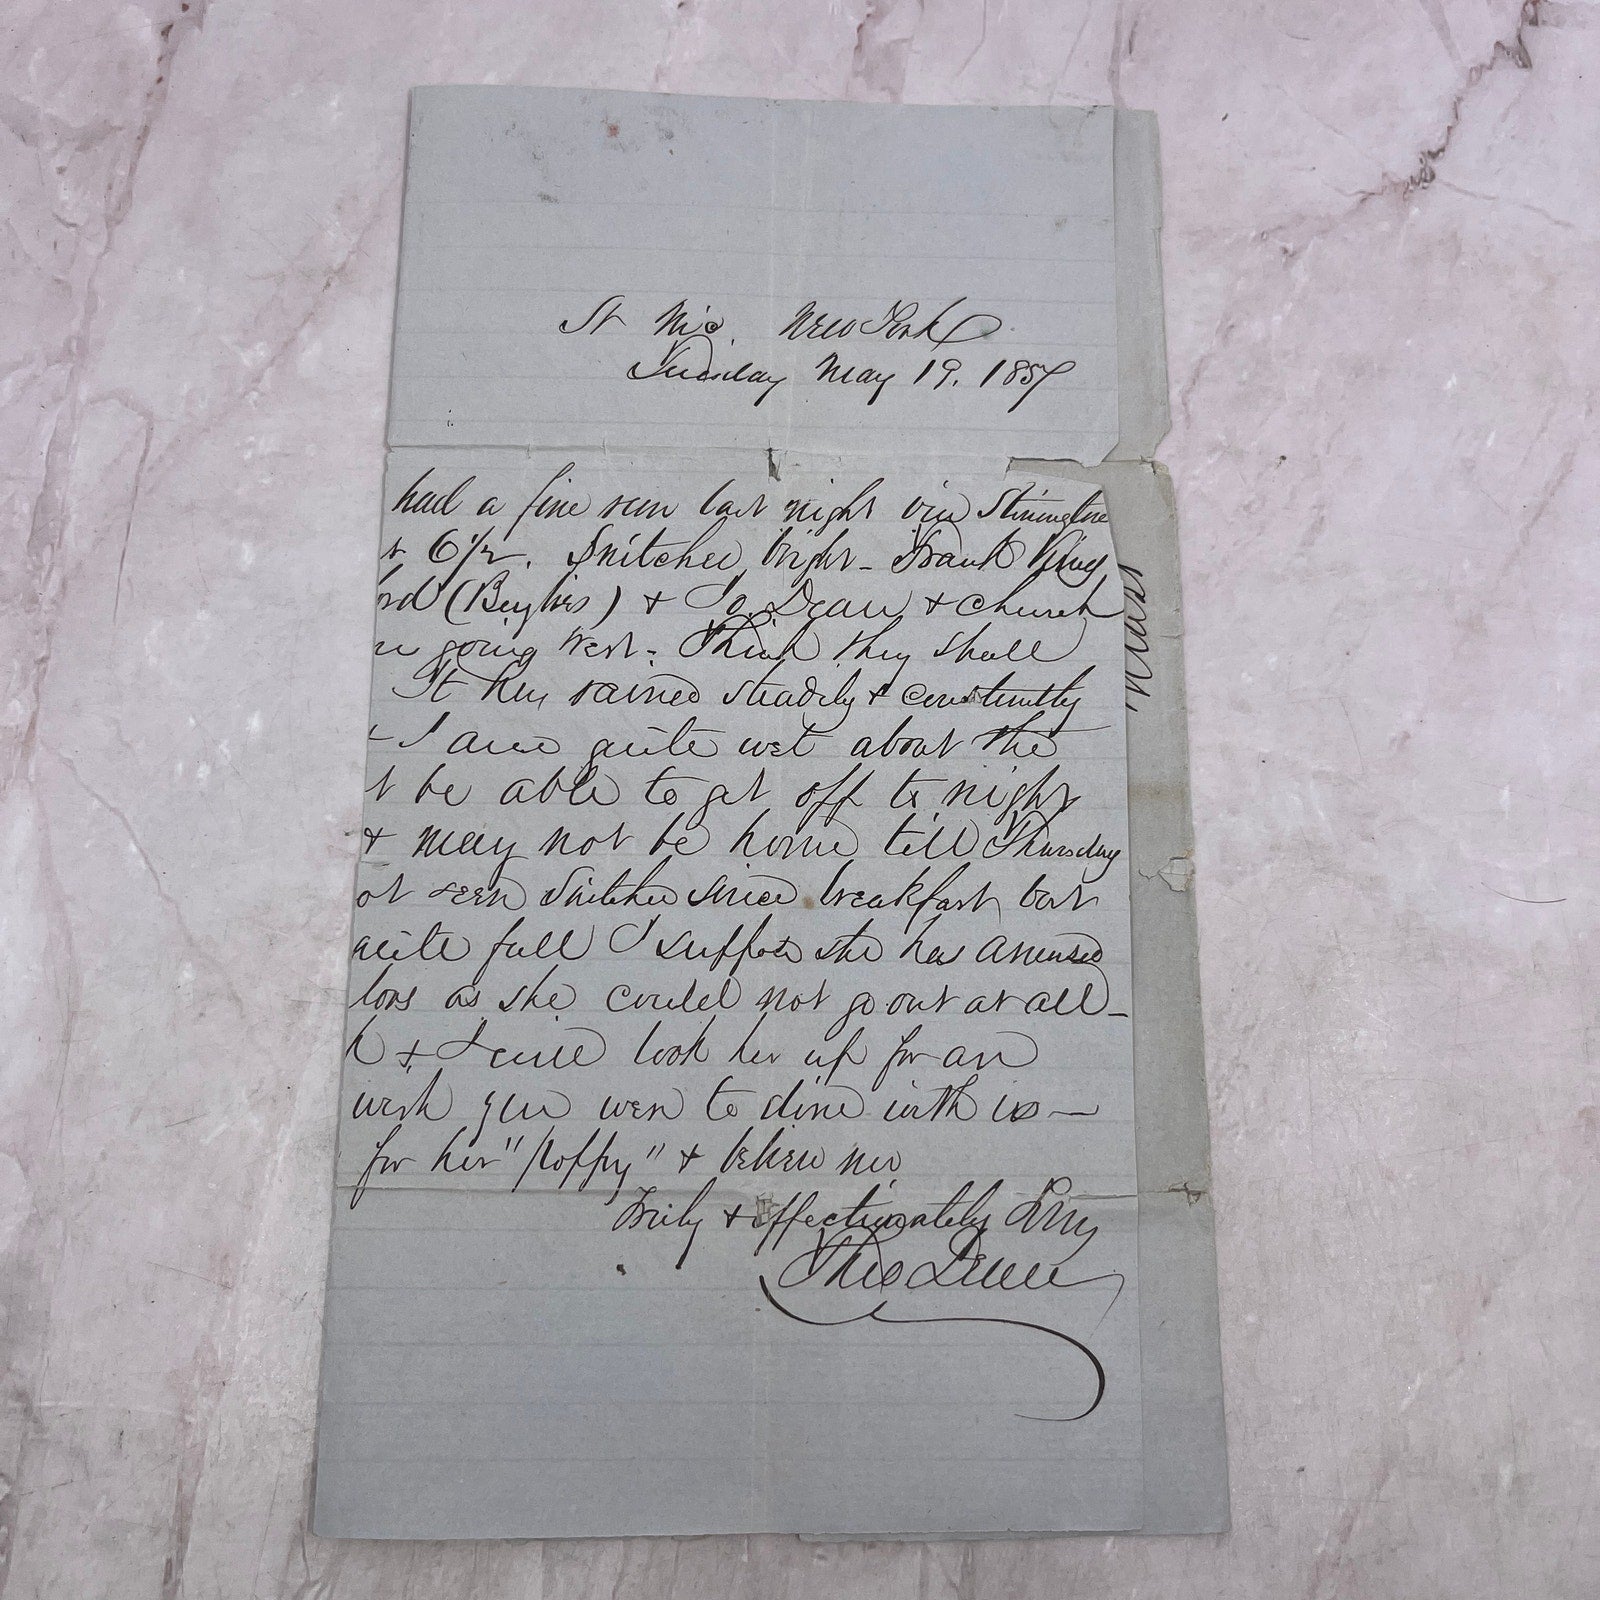 St Nic. New York
Tuesday May 19. 1857
had a fine run last night via Stonington
6 1/2. bright - Frank King
) & Jo. Dean & Church
going West - Think they shall
It has rained steadily & constantly
- I am quite wet about the
t be able to get off to night
& may not be home till Thursday
ot seen since breakfast but
quite full I suppose she has amused
lors as she could not go out at all -
h & I will look her up for an
wish you were to dine with us -
for her "Poppy" & believe me
Truly & affectionately Yrs
Theo Deane